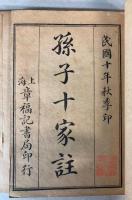 民國十年秋季印
孫子十家註
上海章福記書局印行